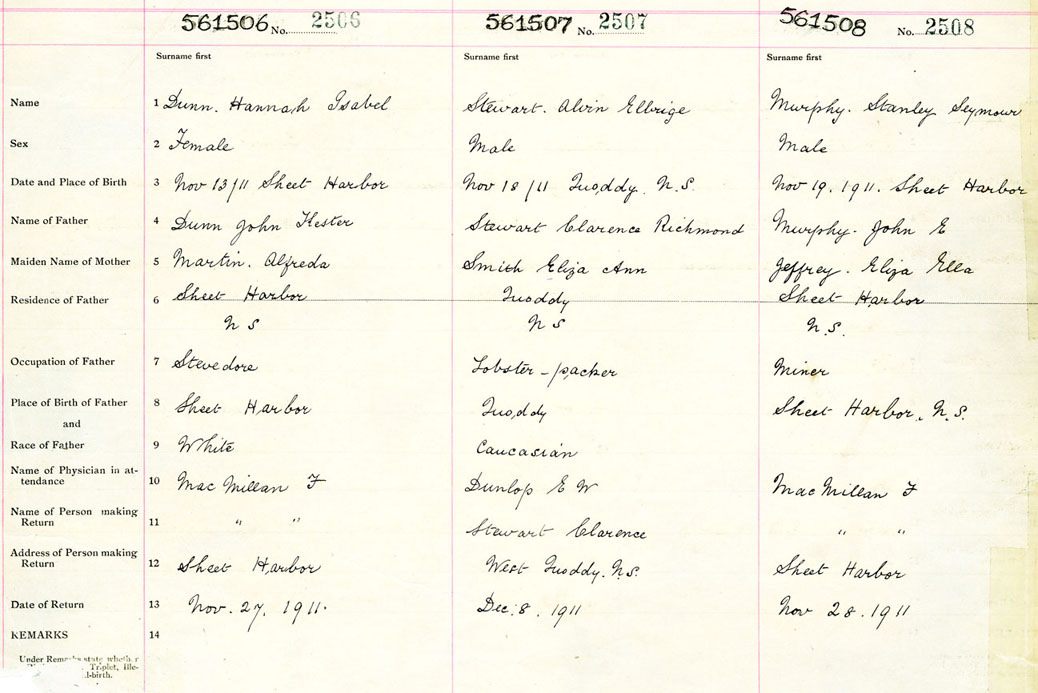 561506 No. 2506 561507 No. 2507 561508 No. 2508
Surname first Surname first Surname first
Name 1 Dunn. Hannah Isabel Stewart. Alvin Elbrige Murphy. Stanley Seymour
Sex 2 Female Male Male
Date and Place of Birth 3 Nov 13/11 Sheet Harbor Nov 18/11 Quoddy. N.S. Nov 19. 1911. Sheet Harbor
Name of Father 4 Dunn John Kester Stewart Clarence Richmond Murphy. John E
Maiden Name of Mother 5 Martin. Alfreda Smith Eliza Ann Jeffrey. Eliza Ella
Residence of Father 6 Sheet Harbor Quoddy Sheet Harbor
N S N S N.S.
Occupation of Father 7 Stevedore Lobster-packer Miner
Place of Birth of Father 8 Sheet Harbor Quoddy Sheet Harbor. N.S.
and
Race of Father 9 White Caucasian
Name of Physician in at-
tendance 10 MacMillan F Dunlop E W MacMillan F
Name of Person making
Return 11 " " Stewart Clarence " "
Address of Person making
Return 12 Sheet Harbor West Quoddy. N.S. Sheet Harbor
Date of Return 13 Nov. 27, 1911. Dec. 8. 1911 Nov 28. 1911
REMARKS 14
Under Remarks state whether
Triplet, Ille-
l-birth.